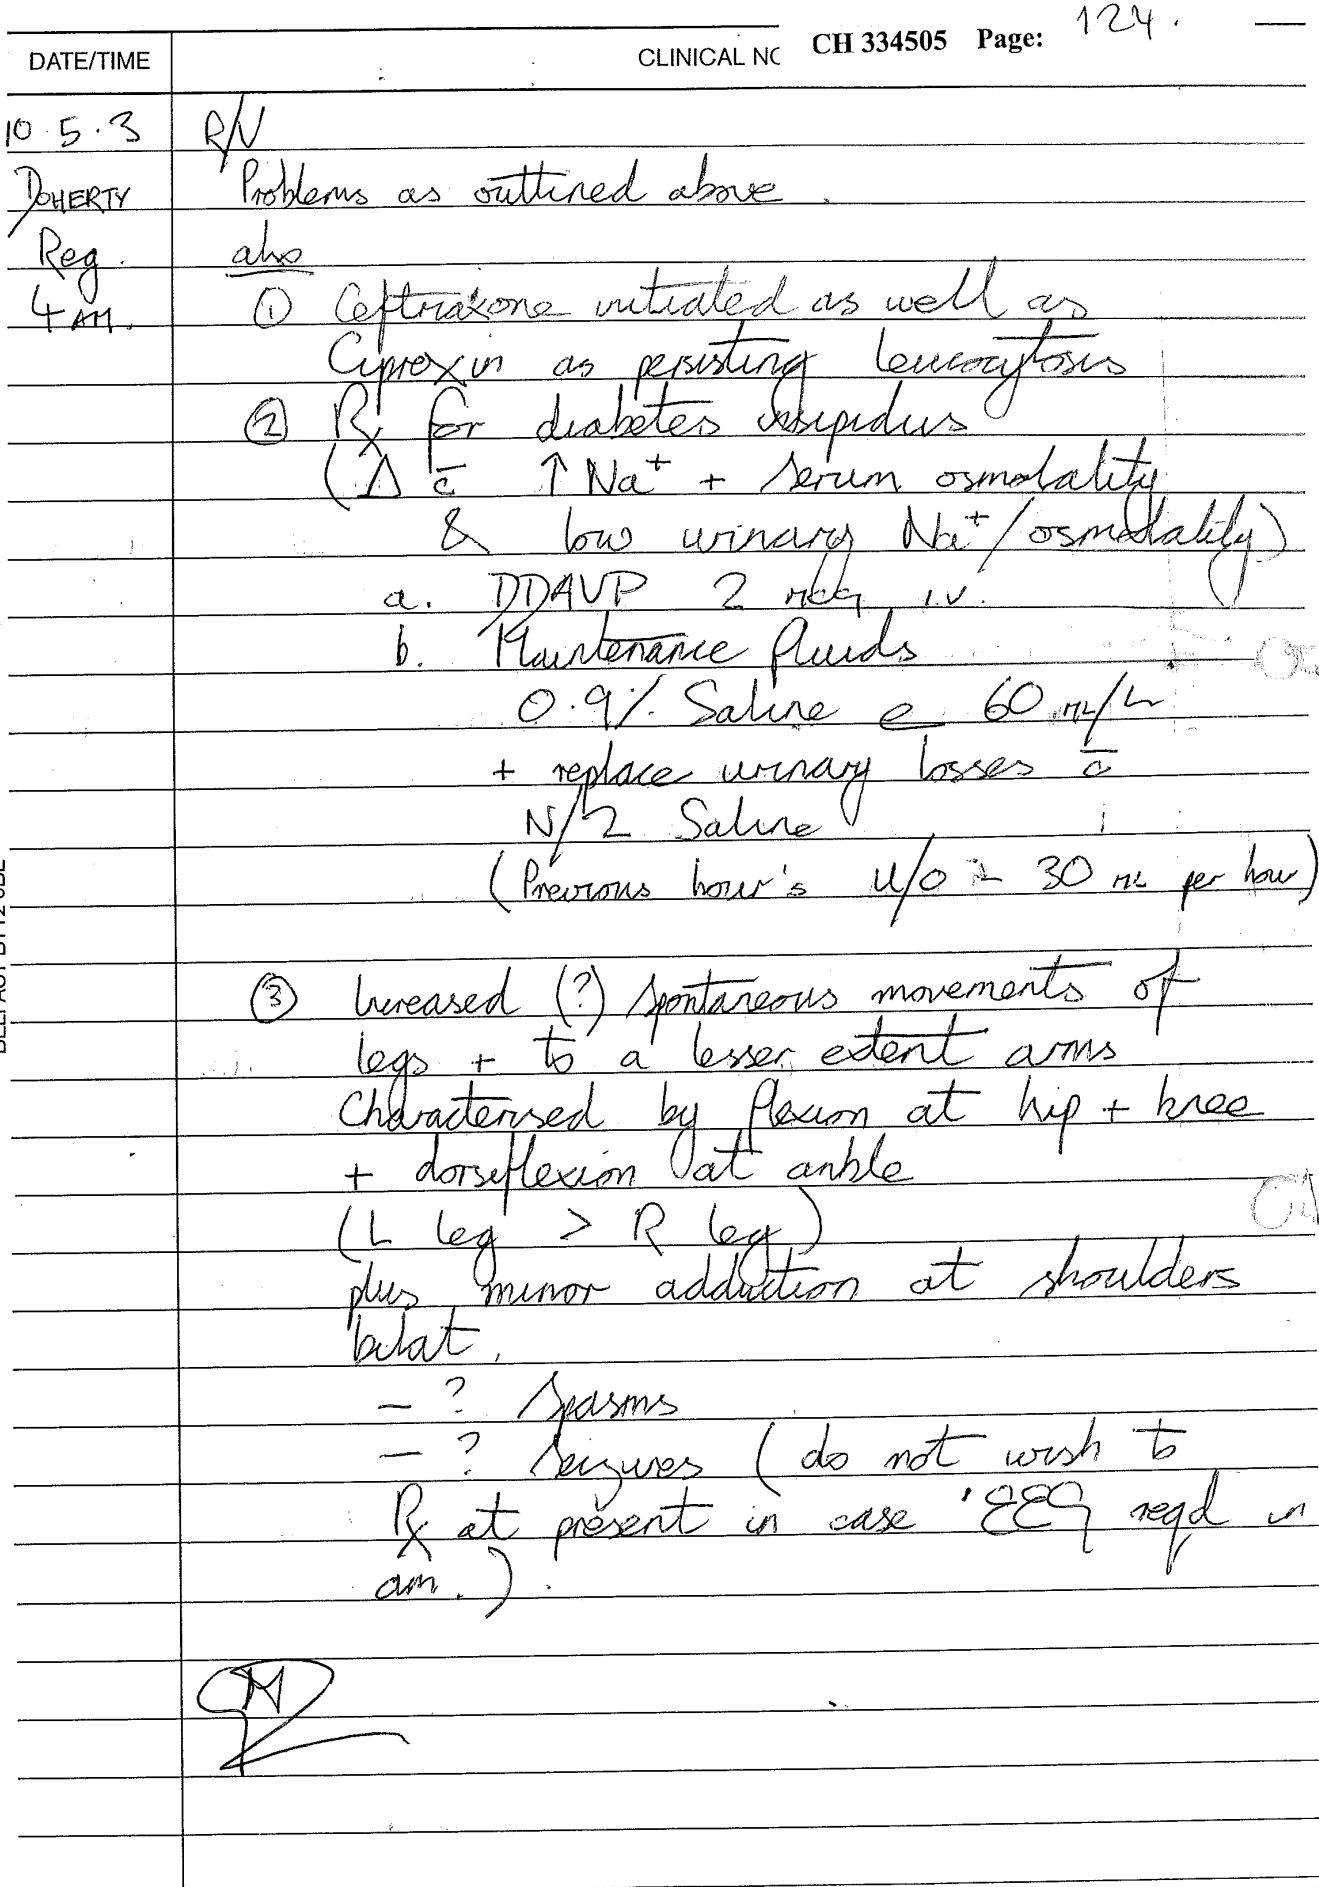 124.
CH 334505 Page:
DATE/TIME CLINICAL NO
10.5.3 R/V
DOHERTY Problems as outlined above.
Reg. also
4 AM. ① Ceftriaxone initiated as well as
Ciproxin as persisting leucocytosis
② Rx for diabetes insipidus
(Δ c̄ ↑ Na⁺ + serum osmolality
& low urinary Na⁺/osmolality)
a. DDAVP 2 mcg i.v.
b. Maintenance fluids
0.9% Saline @ 60 mL/h
+ replace urinary losses c̄
N/2 Saline
(Previous hour's u/o ~ 30 mL per hour)
③ Increased (?) spontaneous movements of
legs + to a lesser extent arms
Characterised by flexion at hip + knee
+ dorsiflexion at ankle
(L leg > R leg)
plus minor adduction at shoulders
bilat.
- ? Spasms
- ? Seizures (do not wish to
Rx at present in case EEG reqd in
am.).